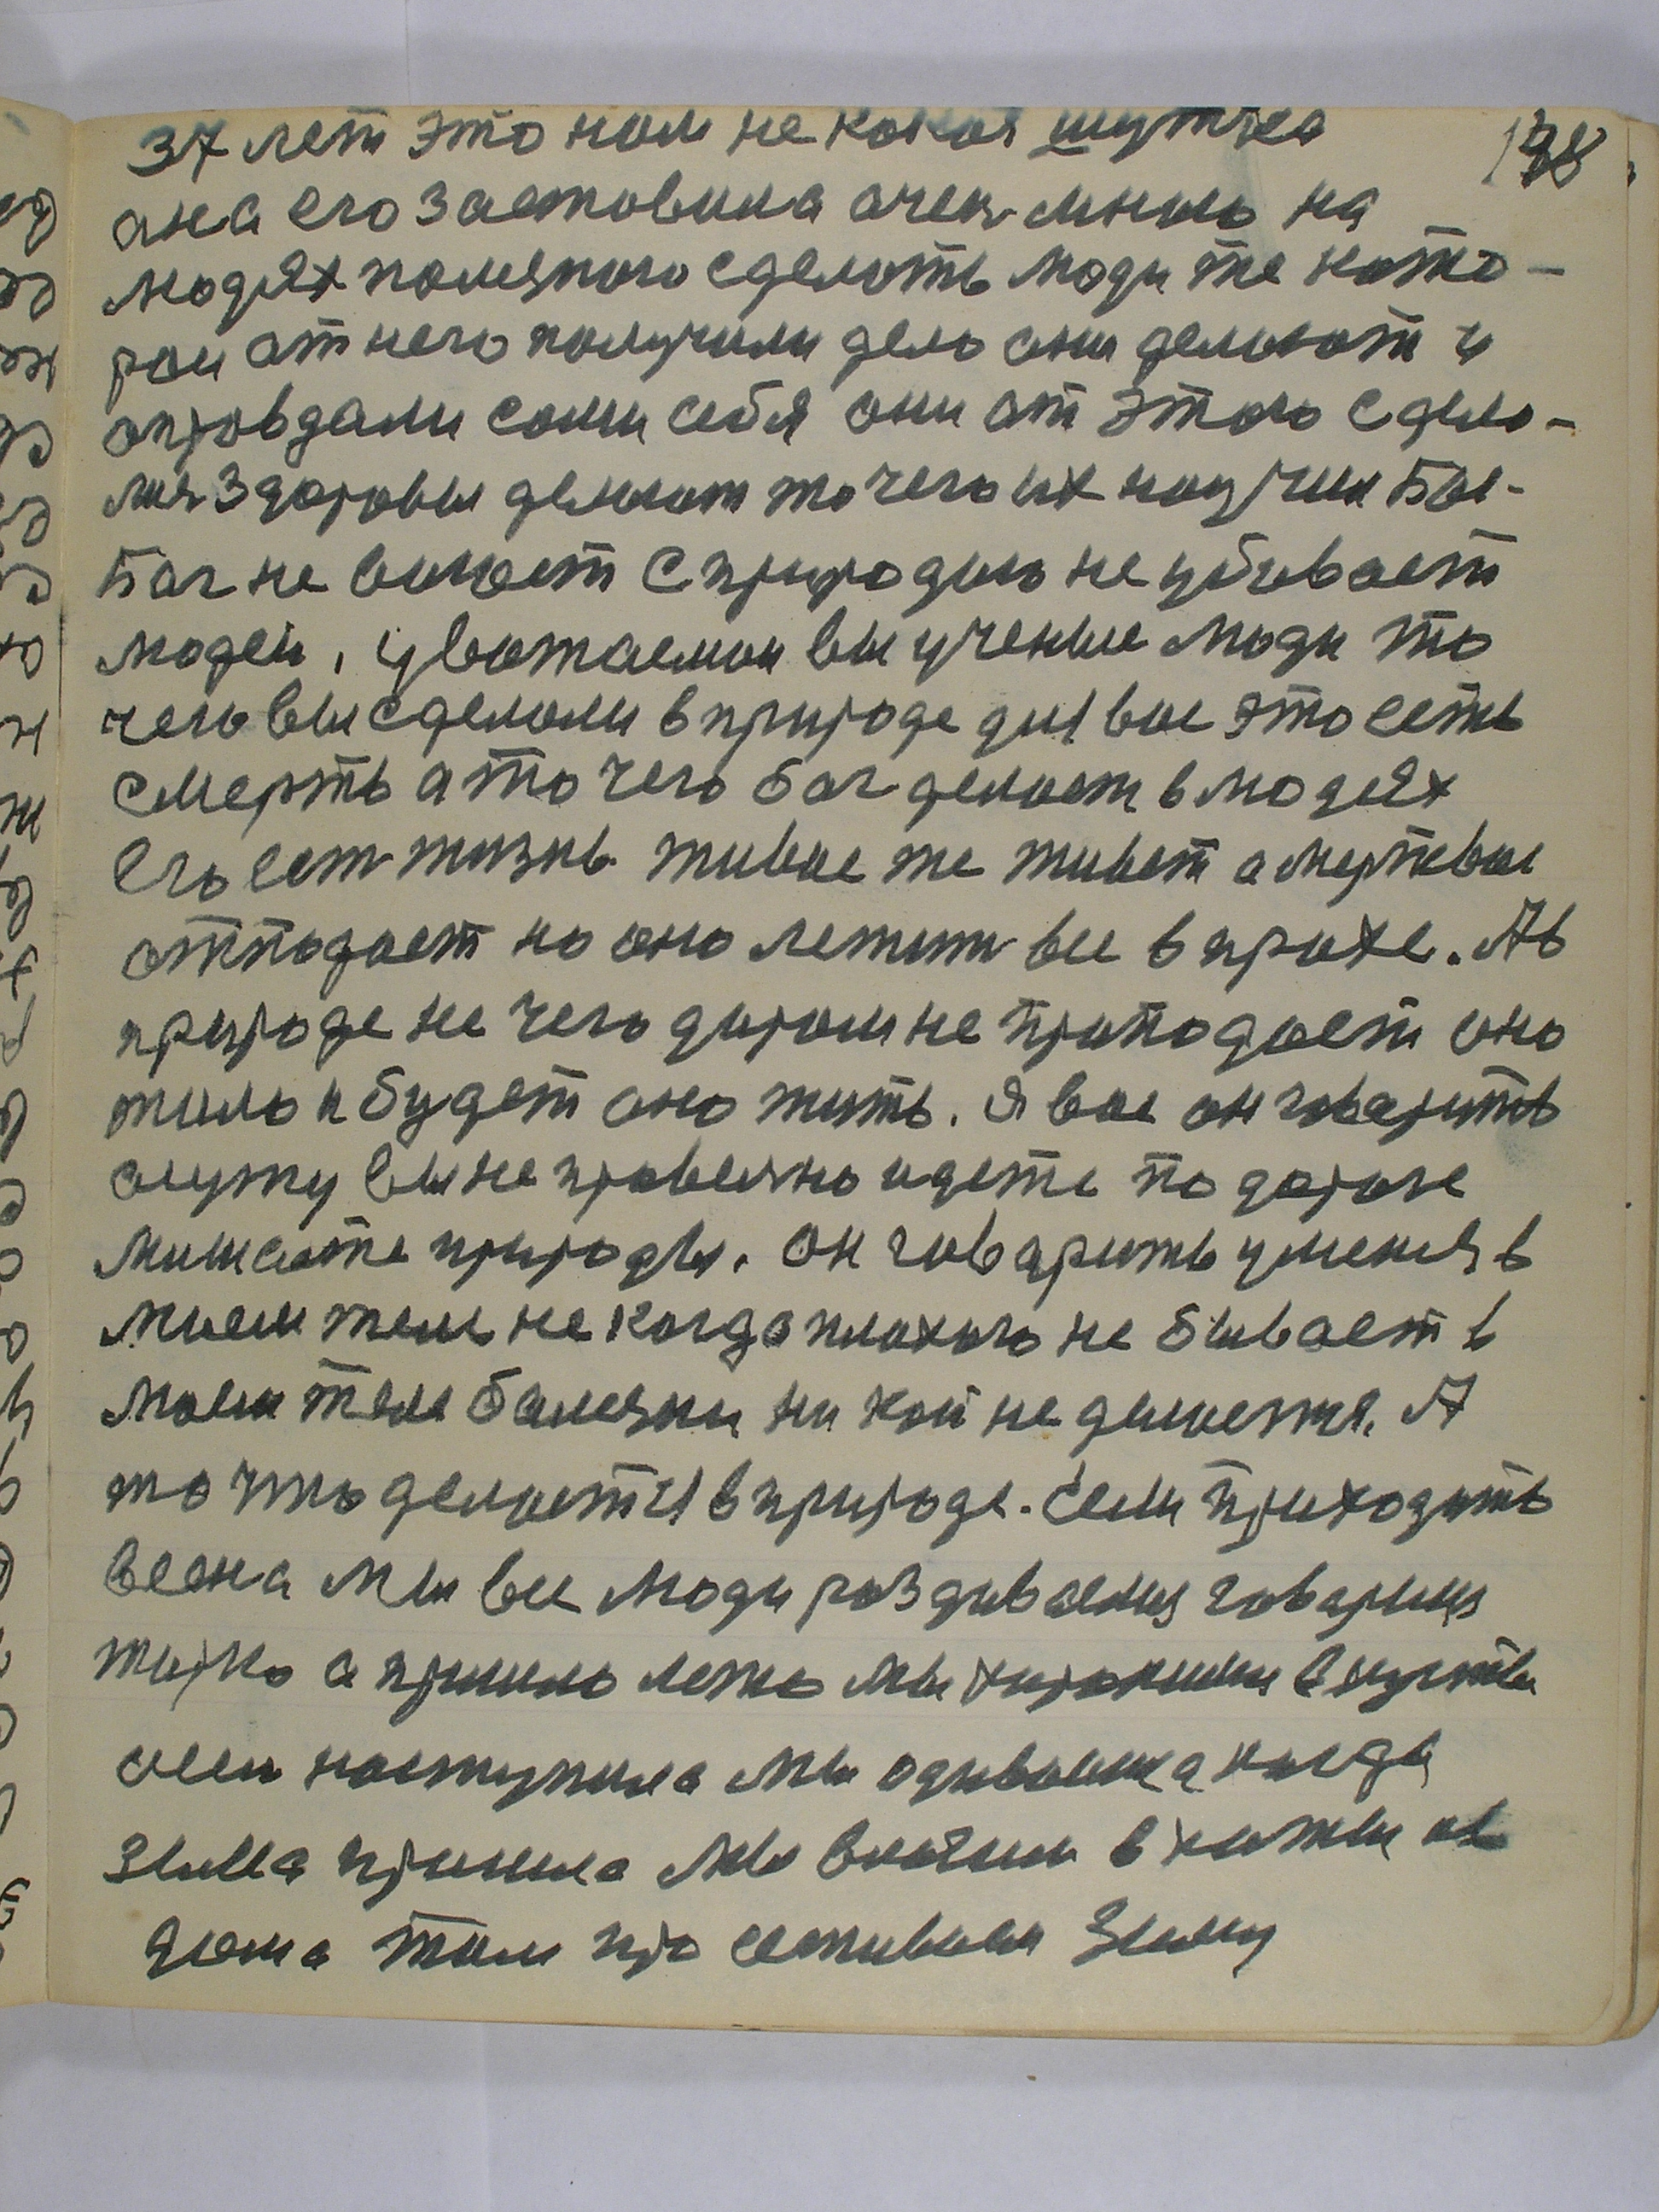 37 лет это нам не какая шутка
198
ана его заставила очен много на
людях полезного сделать люди те кото-
рои от него получили дело они делают и
оправдали сами себя они от этого сдела-
лися здоровы делают то чего их научил Бог-
Бог не воюет с природыю не убивает
людей, уважаемои вы ученые люди то
чего вы сделали в природе для вас это есть
смерть а то чего бог делает в людях
его ест жизнь живое же живет а мертвое
отпадает но оно лежит все в прахе. А в
природе не чего даром не пропадает оно
жило и будет оно жить. Я вас он говарить
сужу вы не правелно идете по дороге
мишаете природы. Он говарить у меня в
моем теле не когда плохого не бывает в
моем теле балезни ни кои не делается. А
то что делается в природе. Если приходить
весна мы все люди раздиваемся говарим
жарко а пришло лето мы хоронимся в кусты
осен наступила мы одиваемся когда
зима пришла мы в хаты
дома там про
зиму